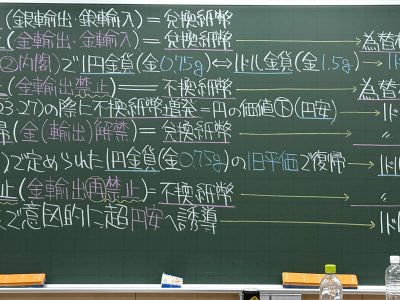 (銀輸出・銀輸入)=兌換紙幣
(金輸出・金輸入)=兌換紙幣 → 為替相
②内閣)で1円金貨(金0.75g)↔1ドル金貨(金1.5g) → 1ド
(金輸出禁止)=不換紙幣 → 為替
23・27)の際に不換紙幣増発=円の価値㊦(円安) → 1ド
帰(金(輸出)解禁)=兌換紙幣 → 〃
)で定められた1円金貨(金0.75g)の旧平価で復帰 → 1ド
止(金輸出再禁止)=不換紙幣 → 〃
で意図的に超円安へ誘導 → 1ド